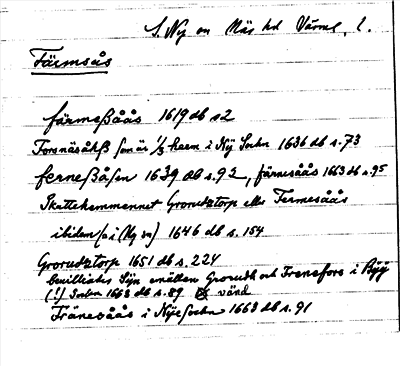 S. Ny sn Näs hd Värml. l.
Färmsås
färmeßåås 1619 db s 2
Forsnäsåhß som är 1/3 heem i Nÿ Sochn 1636 db s. 73
ferneßåsen 1639 db s. 92, färnesåås 1663 db s. 95
Skattehemmannet Grorudztorp eller Fermesåås
ibidem (o: i Ny sn) 1646 db s. 154
Grorudztorp 1651 db s. 224
bewilliates Syn emällen Grorudh och Frenefors i Byÿ
(!) Sochn 1668 db s. 89 vänd
Fränesåås i Nÿe Sochn 1668 db s. 91